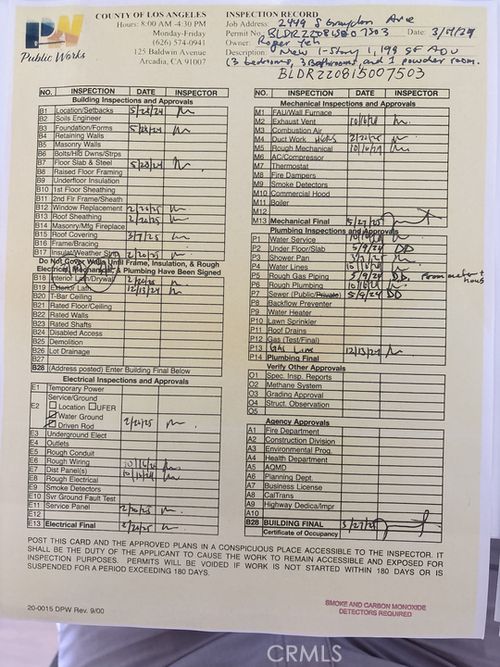 PW
Public Works
COUNTY OF LOS ANGELES
Hours: 8:00 AM -4:30 PM
Monday-Friday
(626) 574-0941
125 Baldwin Avenue
Arcadia, CA 91007
INSPECTION RECORD
Job Address: 2449 S Graydon Ave
Permit No. Date: 3/14/24
Owner: Roger Yeh
Description: New 1-Story 1,199 SF ADU
(3 bedrooms, 3 Bathrooms, and 1 powder room.
BLDR220815007503
NO. INSPECTION DATE INSPECTOR
Building Inspections and Approvals
B1 Location/Setbacks 5/28/24
B2 Soils Engineer
B3 Foundation/Forms 5/28/24
B4 Retaining Walls
B5 Masonry Walls
B6 Bolts/HD Dwns/Strps
B7 Floor Slab & Steel 5/28/24
B8 Raised Floor Framing
B9 Underfloor Insulation
B10 1st Floor Sheathing
B11 2nd Flr Frame/Sheath
B12 Window Replacement
B13 Roof Sheathing
B14 Masonry/Mfg Fireplace
B15 Roof Covering 3/7/25
B16 Frame/Bracing
B17 Insulat/Weather Strip
Do Not Cover Walls Until Frame, Insulation, & Rough
Electrical, Mechanical & Plumbing Have Been Signed
B18 Interior Lath/Drywall
B19 Exterior Lath 12/13/24
B20 T-Bar Ceiling
B21 Rated Floor/Ceiling
B22 Rated Walls
B23 Rated Shafts
B24 Disabled Access
B25 Demolition
B26 Lot Drainage
B27
B28 (Address posted) Enter Building Final Below
Electrical Inspections and Approvals
E1 Temporary Power
Service/Ground
E2 Location UFER
Water Ground
Driven Rod
E3 Underground Elect
E4 Outlets
E5 Rough Conduit
E6 Rough Wiring
E7 Dist Panel(s)
E8 Rough Electrical
E9 Smoke Detectors
E10 Svr Ground Fault Test
E11 Service Panel
E12
E13 Electrical Final
NO. INSPECTION DATE INSPECTOR
Mechanical Inspections and Approvals
M1 FAU/Wall Furnace
M2 Exhaust Vent
M3 Combustion Air
M4 Duct Work
M5 Rough Mechanical
M6 AC/Compressor
M7 Thermostat
M8 Fire Dampers
M9 Smoke Detectors
M10 Commercial Hood
M11 Boiler
M12
M13 Mechanical Final 5/27/25
Plumbing Inspections and Approvals
P1 Water Service
P2 Under Floor/Slab 5/9/24 DD
P3 Shower Pan
P4 Water Lines
P5 Rough Gas Piping 5/9/24 DD
P6 Rough Plumbing
P7 Sewer (Public/Private) 5/9/24 DD
P8 Backflow Preventer
P9 Water Heater
P10 Lawn Sprinkler
P11 Roof Drains
P12 Gas (Test/Final)
P13 GAS Line
P14 Plumbing Final 12/13/24
Verify Other Approvals
O1 Spec. Insp. Reports
O2 Methane System
O3 Grading Approval
O4 Struct. Observation
O5
Agency Approvals
A1 Fire Department
A2 Construction Division
A3 Environmental Prog.
A4 Health Department
A5 AQMD
A6 Planning Dept.
A7 Business License
A8 CalTrans
A9 Highway Dedica/Impr
A10
B28 BUILDING FINAL 5/27/25
Certificate of Occupancy
POST THIS CARD AND THE APPROVED PLANS IN A CONSPICUOUS PLACE ACCESSIBLE TO THE INSPECTOR. IT
SHALL BE THE DUTY OF THE APPLICANT TO CAUSE THE WORK TO REMAIN ACCESSIBLE AND EXPOSED FOR
INSPECTION PURPOSES. PERMITS WILL BE VOIDED IF WORK IS NOT STARTED WITHIN 180 DAYS OR IS
SUSPENDED FOR A PERIOD EXCEEDING 180 DAYS.
20-0015 DPW Rev. 9/00
SMOKE AND CARBON MONOXIDE
DETECTORS REQUIRED
CRMLS